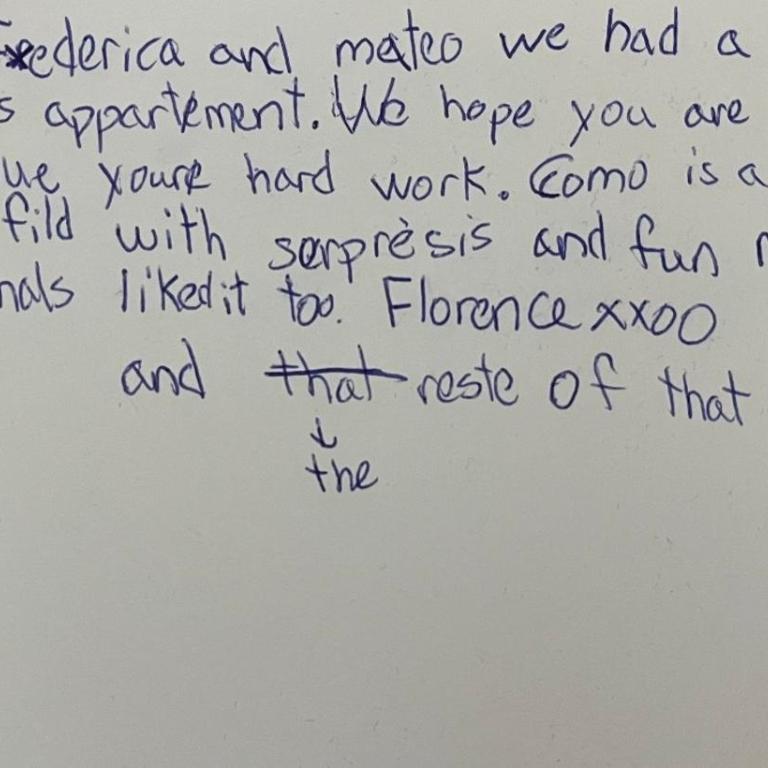 Frederica and mateo we had a
s appartement. We hope you are
ue youre hard work. Como is a
fild with sorprèsis and fun
nals likedit too. Florence xxoo
and that reste of that
↓
the